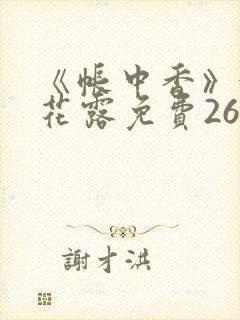 《帳中香》
花露免費26
謝才洪